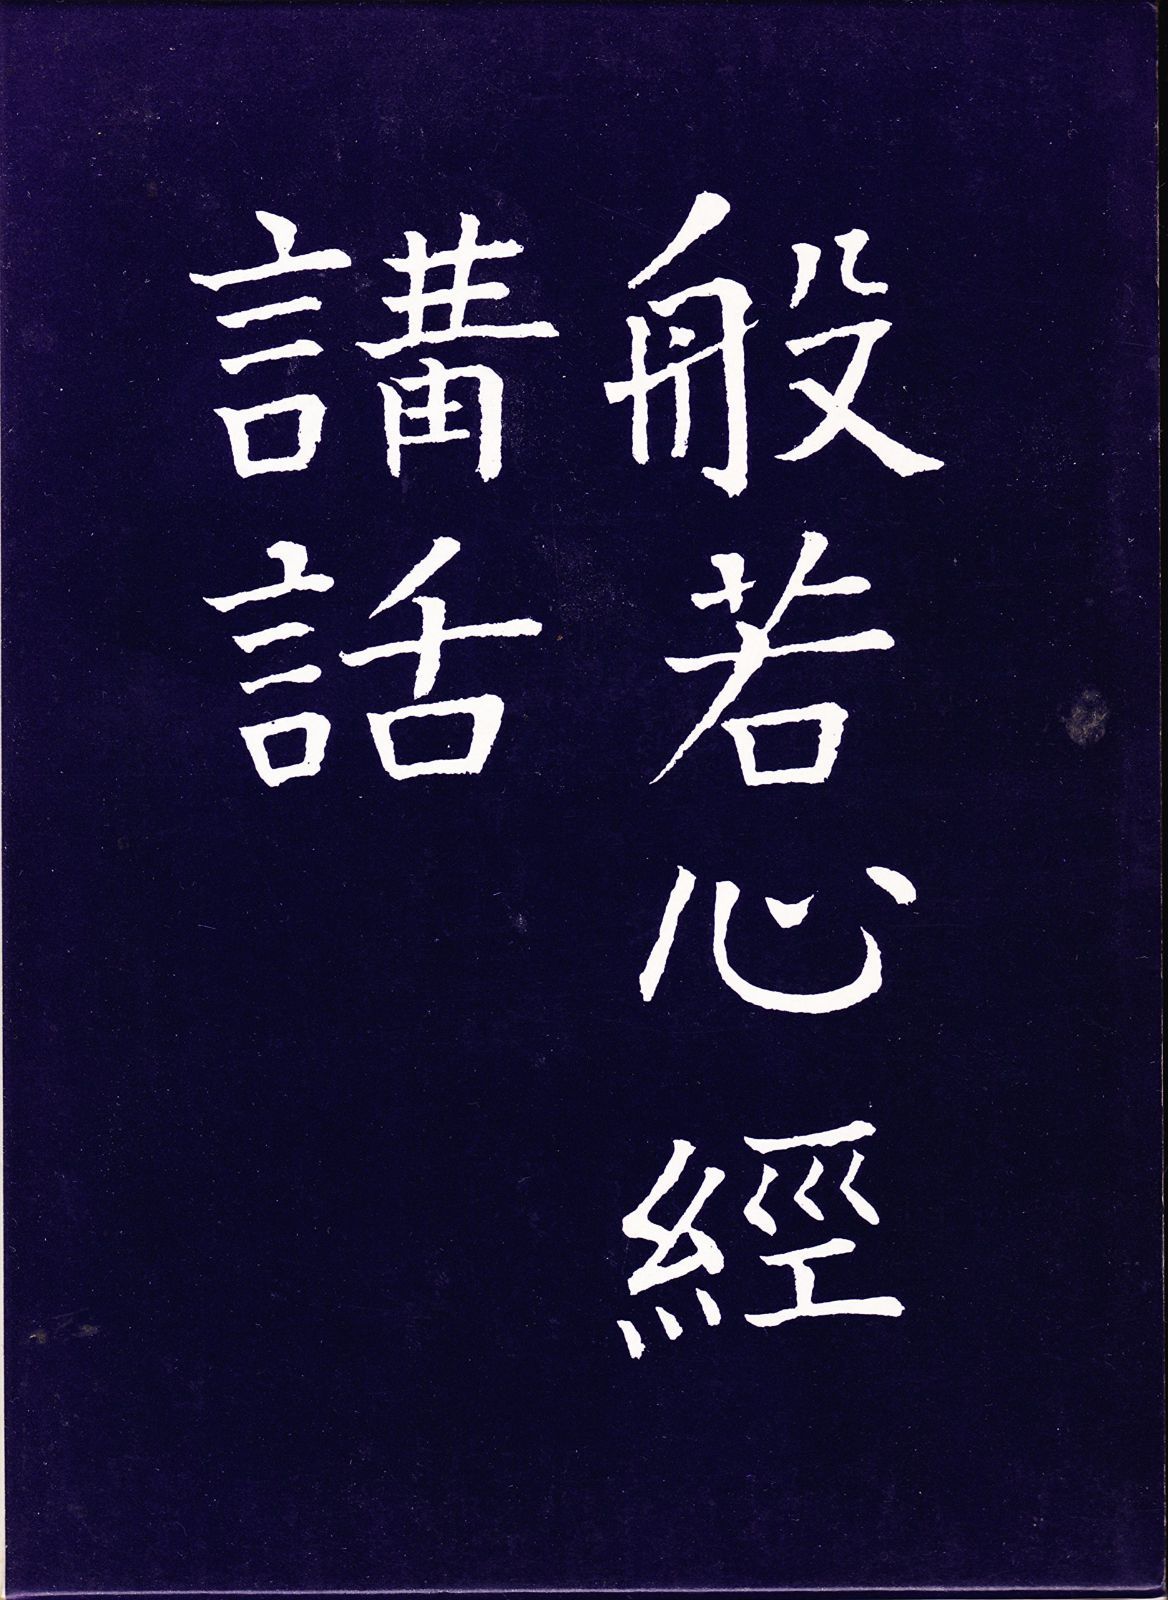 般若心經
講話